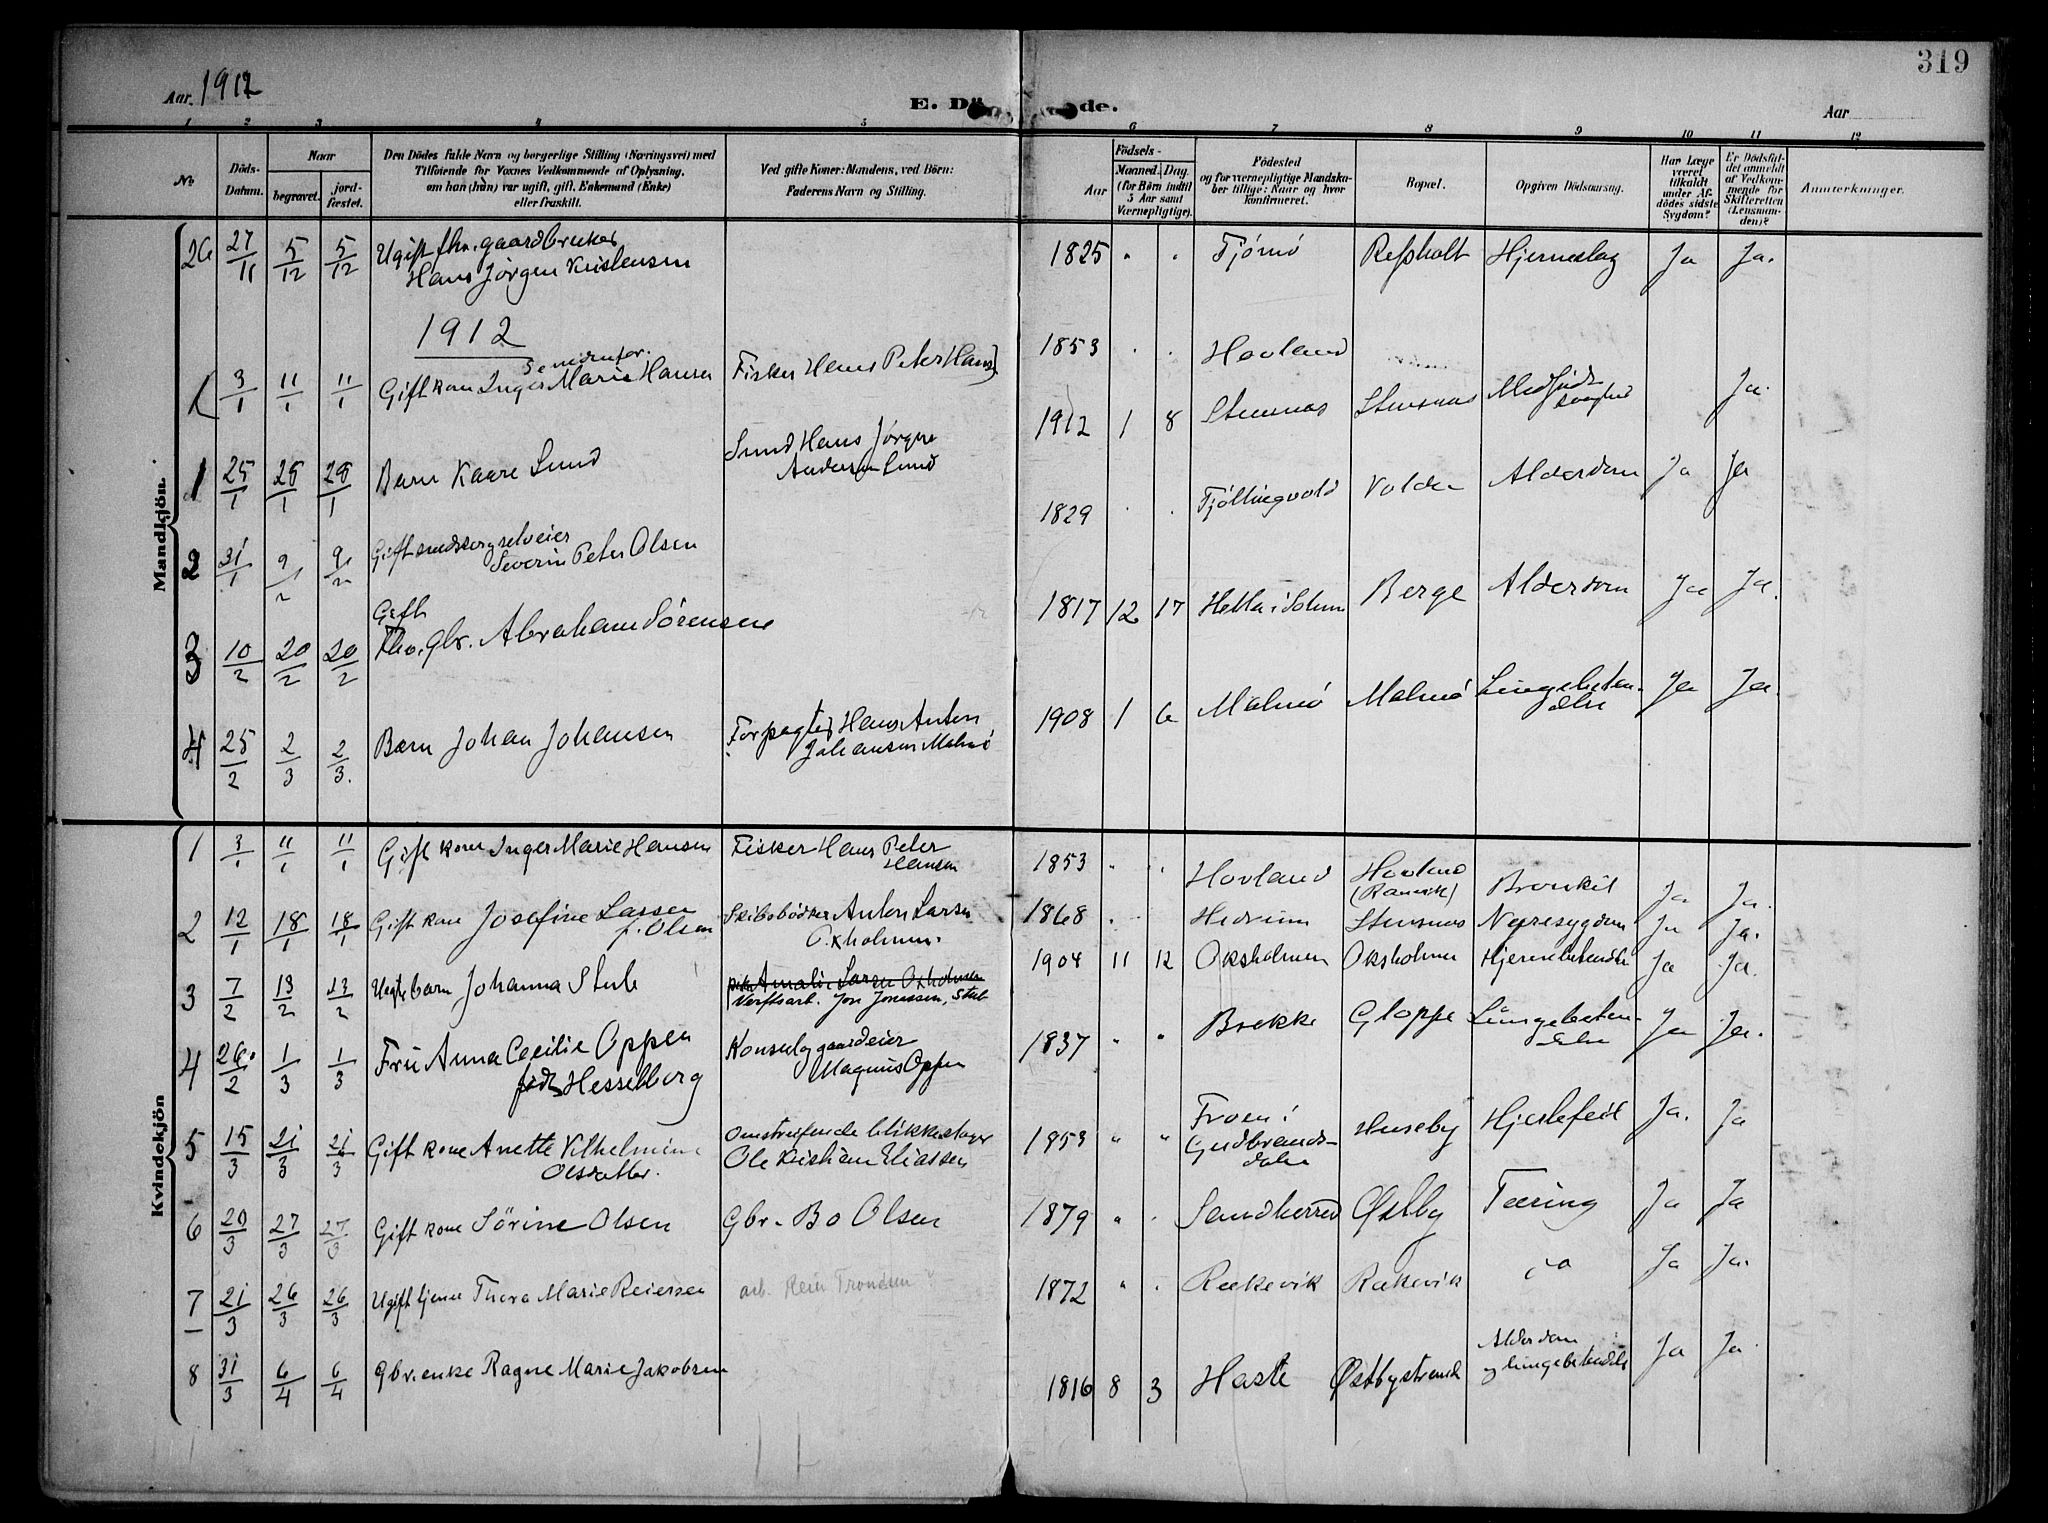 319
Aar 1912
E. Dö de.
Aar
1 2 3 4 5 6 7 8 9 10 11 12
No.
Döds-Datum.
Naar
begravet.
jord-fæstet.
Den Dödes fulde Navn og borgerlige Stilling (Næringsvei) med
Tilföiende for Voxnes Vedkommende af Oplysning,
om han (hun) var ugift, gift, Enkemand (Enke)
eller fraskilt.
Ved gifte Koner: Mandens, ved Börn:
Faderens Navn og Stilling.
Födsels-
Aar
Maaned. Dag
(for Börn indtil
5 Aar samt
Værnepligtige).
Födested
og for værnepligtige Mandska-
ber tillige: Naar og hvor
konfirmeret.
Bopæl.
Opgiven Dödsaarsag.
Har Læge
været
tilkaldt
under Af-
dödes sidste
Sygdom?
Er Dödsfal-
det anmeldt
af Vedkom-
mende for
Skifteretten
(Lensman-
den)?
Anmærkninger.
Mandkjön.
26 27/11 5/12 5/12 Ugift fhv. gaardbruker
Hans Jørgen Kristensen
1825 " " Tjømø Refsholt Hjerneslag Ja Ja.
1912
Se nedenfor.
1 3/1 11/1 11/1 Gift kone Inger Marie Hansen Fisker Hans Peter Hans.
1853 " " Hovland
1 25/1 28/1 28/1 Barn Kaare Lund Lund Hans Jørgen
Andersen Lund
1912 1 8 Stensnæs Stensnæs Medfødt
svaghed Ja.
2 31/1 9/2 9/2 Gift selveier
Severin Peter Olsen
1829 " " Tjøllingvold Volden Alderdom Ja Ja
3 10/2 20/2 20/2 Gift
Fhv. Gbr. Abraham Sørensen
1817 12 17 Hella i Berge Alderdom Ja Ja.
4 25/2 2/3 2/3. Barn Johan Johansen Forpagter Hans Anton
Johansen Malmø
1908 1 6 Malmø Malmø Lungebeten-
delse Ja Ja.
Kvindekjön
1 3/1 11/1 11/1 Gift kone Inger Marie Hansen Fisker Hans Peter
Hansen
1853 " " Hovland Hovland
(Ranvik) Bronkit Ja Ja.
2 12/1 18/1 18/1 Gift kone Josefine Larsen
f. Olsen Skibsbødker Anton Larsen
Oxholmen.
1868 " Hedrum Stensnæs Nyresygdom Ja Ja.
3 7/2 13/2 13/2 Uegte barn Johanna Stub pike Amalie Larsen Oxholmen
Verftsarb. Jon Jonassen, Stub
1904 11 12 Oksholmen Oksholmen Hjernebetendelse Ja Ja.
4 26/2 1/3 1/3 Fru Anna Cecilie Oppen
født Hesselberg Konsul og gaardeier
Magnus Oppen
1837 " " Brekke Gloppe Lungebeten-
delse Ja Ja.
5 15/3 21/3 21/3 Gift kone Anette Vilhelmine
Olsdatter. Omstreifende blikkenslager
Ole Kristian Eliassen
1853 " " Froen i
Gudbrands-
dalen Huseby Hjertefeil Ja. Ja
6 20/3 27/3 27/3 Gift kone Sørine Olsen Gbr. Bo Olsen
1879 " " Sandherred Østby Tæring Ja Ja
7 21/3 26/3 26/3 Ugift tjener Thora Marie Reiersen arb. Rein Trondsen
1872 " " Rækevik Rækevik do Ja Ja.
8 31/3 6/4 6/4 Gbr. enke Ragne Marie Jakobsen
1816 8 3 Haste Østbystrand Alderdom
og lungebetendelse Ja Ja.